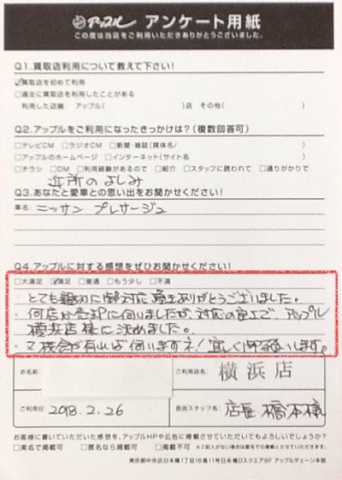 アップル アンケート用紙
この度は当店をご利用いただきありがとうございました。
Q1.買取店利用について教えて下さい!
☑買取店を初めて利用
□過去に買取店を利用したことがある
利用した店舗: アップル( )店 その他( )
Q2.アップルをご利用になったきっかけは?(複数回答可)
□テレビCM □ラジオCM □新聞・雑誌(媒体名/ )
□アップルのホームページ □インターネット(サイト名/ )
□チラシ □DM □利用経験があるので □紹介 □スタッフに誘われて □通りがかりで
近所のよしみ
Q3.あなたと愛車との思い出をお聞かせください!
車名: ニッサン プレサージュ
Q4.アップルに対する感想をぜひお聞かせください!
□大満足 ☑満足 □普通 □もう少し □不満
・とても親切に御対応頂きありがとうございました。
・何店か売却に伺いましたが、対応の良さで、アップル
横浜店様に決めました。
・又機会が有れば伺いますネ!宜しく御願いします。
お名前
ご利用店名 横浜店
ご利用日 2018.2.26
担当スタッフ名 店長 橋本様
お客様に書いていただいた感想を、アップルHPや広告に掲載させていただいてもよろしいでしょうか?
□実名で掲載可 □匿名なら掲載可 □掲載不可
東京都中央区日本橋1丁目16番11号日本橋DスクエアGF アップルチェーン本部